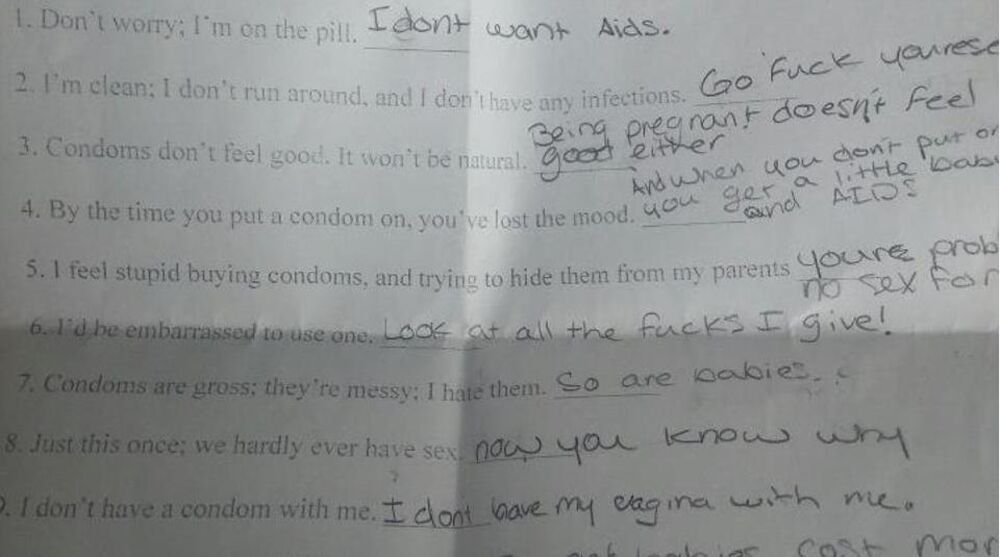 1. Don't worry; I'm on the pill. I dont want Aids.
2. I'm clean; I don't run around, and I don't have any infections. Go Fuck
Being pregnant doesn't feel
3. Condoms don't feel good. It won't be natural. good either
And when you don't put
4. By the time you put a condom on, you've lost the mood. you get a little
and AIDS
5. I feel stupid buying condoms, and trying to hide them from my parents youre
no sex for
6. I'd be embarrassed to use one. Look at all the fucks I give!
7. Condoms are gross; they're messy; I hate them. So are babies.
8. Just this once; we hardly ever have sex. now you know why
9. I don't have a condom with me. I dont have my vagina with me.
cost